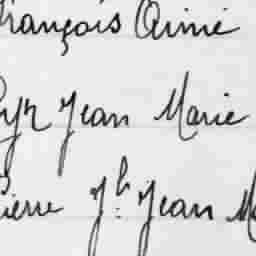 François Aimé
Jean Marie
Pierre Jh Jean